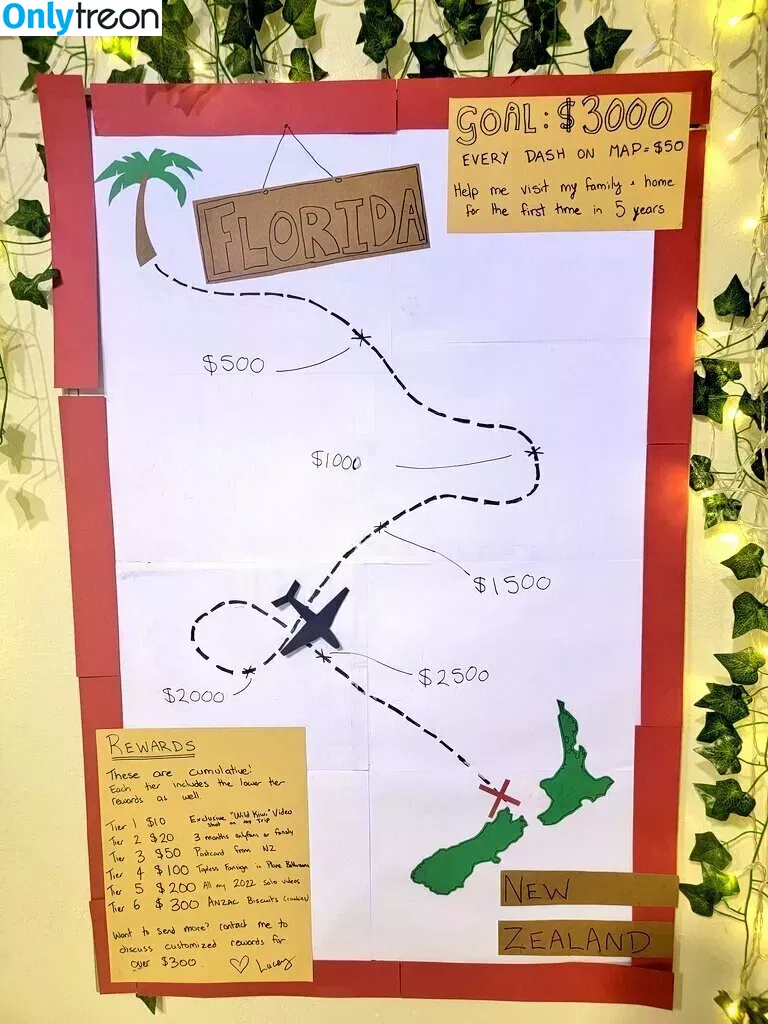 Onlytreon
GOAL: $3000
EVERY DASH ON MAP = $50
Help me visit my family + home
for the first time in 5 years
FLORIDA
$500
$1000
$1500
$2000
$2500
REWARDS
These are cumulative!
Each tier includes the lower tier
rewards as well.
Tier 1 $10 Exclusive "Wild Kiwi" Video
Shot on my Trip
Tier 2 $20 3 months onlyfans or fansly
Tier 3 $50 Postcard from NZ
Tier 4 $100 Topless Fansign in Plane Bathroom
Tier 5 $200 All my 2022 solo videos
Tier 6 $300 ANZAC Biscuits (cookies)
Want to send more? contact me to
discuss customized rewards for
over $300. ♡ Lucy
NEW
ZEALAND